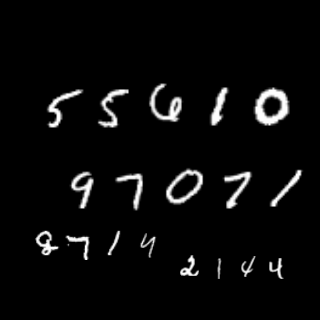 55610
97071
8714
2144